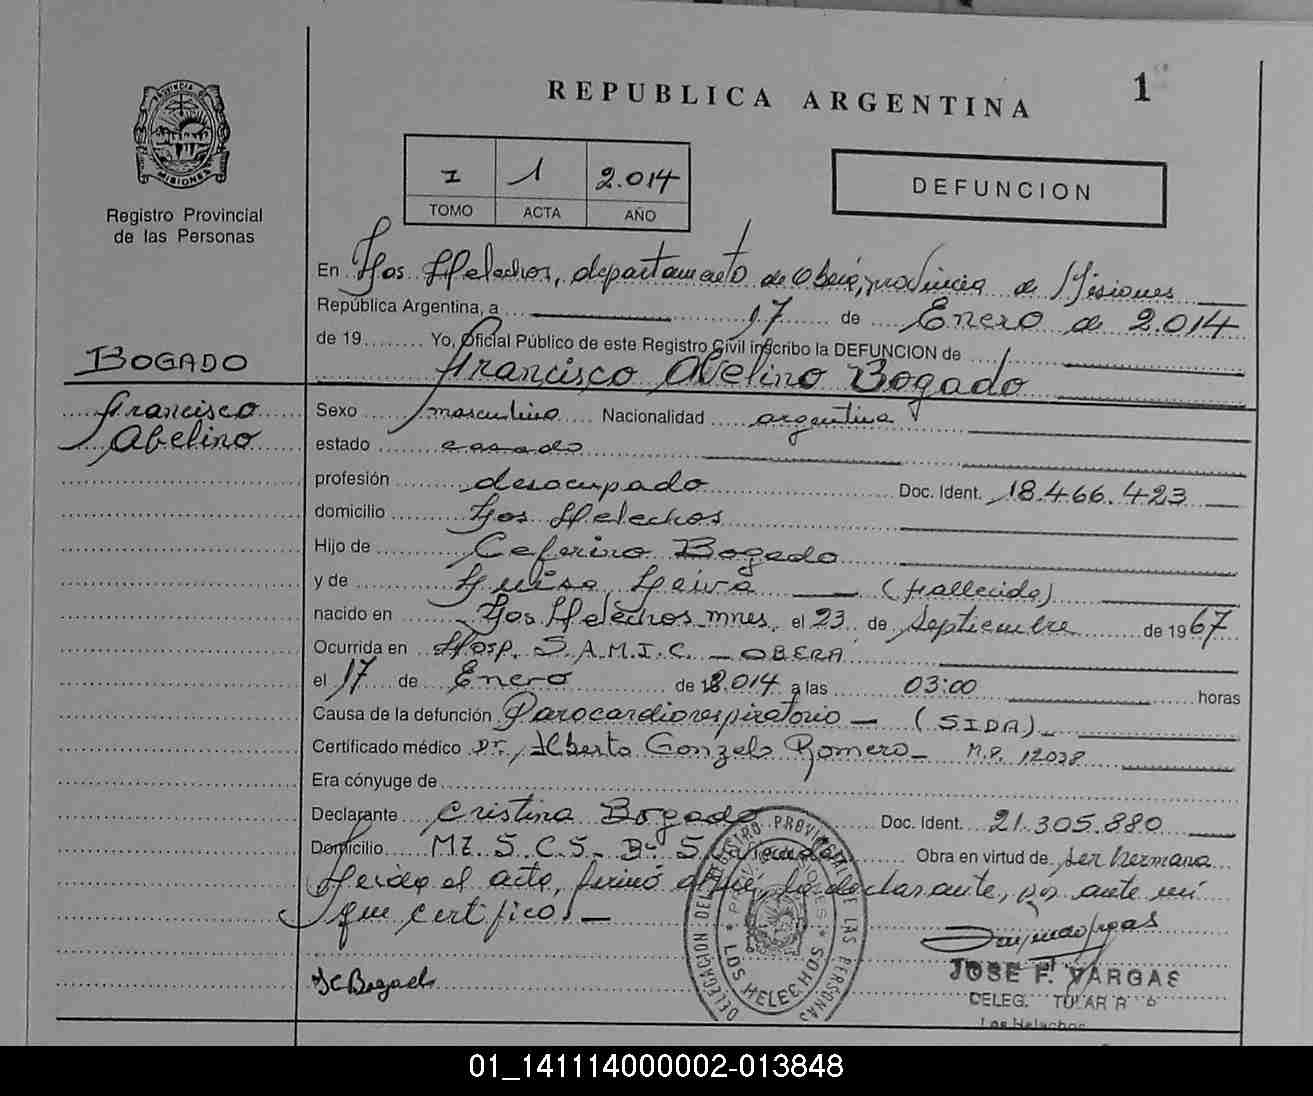 REPUBLICA ARGENTINA
1
PROVINCIA DE
MISIONES
Registro Provincial
de las Personas
I 1 2.014
TOMO ACTA AÑO
DEFUNCION
En Los Helechos, departamento de Oberá, provincia de Misiones
República Argentina, a 17 de Enero de 2.014
de 19 Yo, Oficial Público de este Registro Civil inscribo la DEFUNCION de
BOGADO
Francisco Abelino Bogado
Francisco
Abelino
Sexo masculino Nacionalidad argentina
estado casado
profesión desocupado Doc. Ident. 18.466.423
domicilio Los Helechos
Hijo de Ceferino Bogado
y de Luisa Leiva (fallecida)
nacido en Los Helechos mnes, el 23 de Septiembre de 1967
Ocurrida en Hosp. S.A.M.I.C. - OBERA
el 17 de Enero de 2.014 a las 03:00 horas
Causa de la defunción Parocardiorespiratorio - (SIDA)
Certificado médico Dr. Alberto Gonzalo Romero - M.P. 12028
Era cónyuge de
Declarante Cristina Bogado Doc. Ident. 21.305.880
Domicilio MZ. S. C. 5. Bº S. Obra en virtud de ser hermana
Leída el acta, firmó la declarante, por ante mí
que certifico. -
JC Bogado
DELEGACION DEL REGISTRO PROVINCIAL DE LAS PERSONAS
PROV. MISIONES
LOS HELECHOS
JOSE F. VARGAS
DELEG. TITULAR R
Los Helechos
01_141114000002-013848